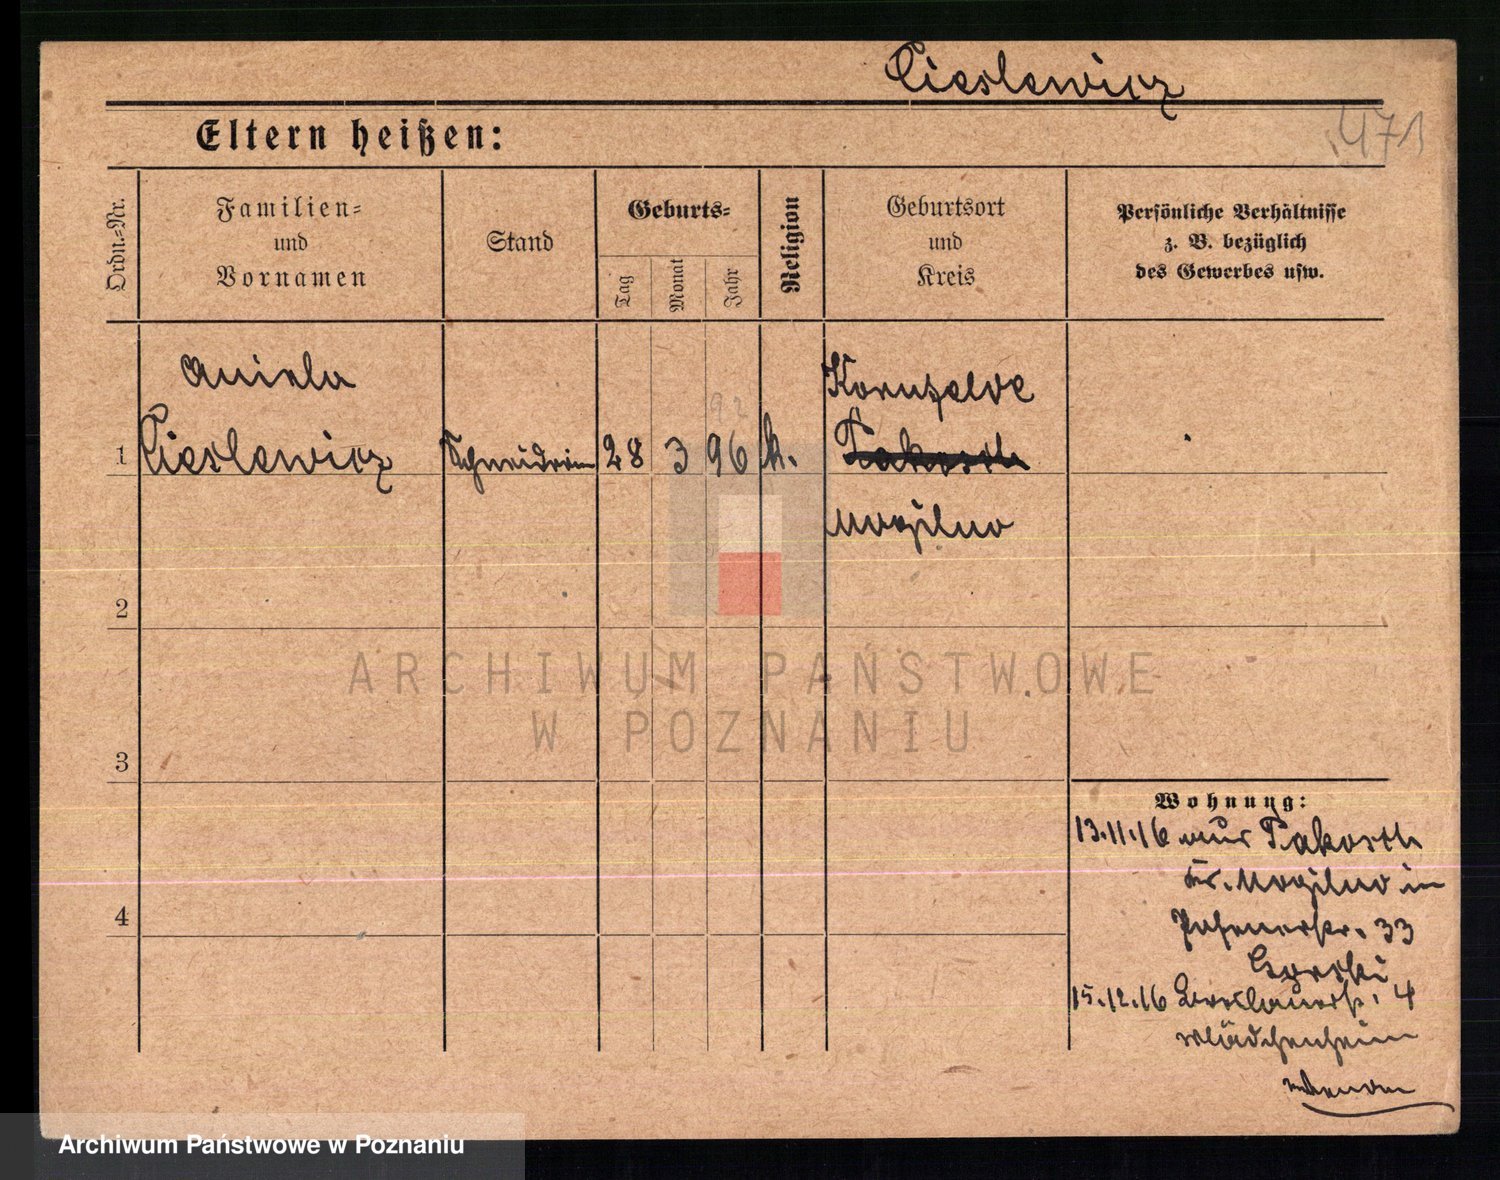 Cieslewicz
471
Eltern heißen:
Ordn.-Nr.
Familien-
und
Vornamen
Stand
Geburts-
Tag
Monat
Jahr
Religion
Geburtsort
und
Kreis
Persönliche Verhältnisse
z. B. bezüglich
des Gewerbes usw.
Aniela
92
Kornfelde
1 Cieslewicz Schneiderin 28 3 96 k. Pakosch
Mogilno
2
ARCHIWUM PAŃSTWOWE
W POZNANIU
3
Wohnung:
13.11.16 aus Pakosch
Kr. Mogilno in
Posenerstr. 33
Gorski
4
15.12.16 Breslauerstr. 4
Mädchenheim
Archiwum Państwowe w Poznaniu